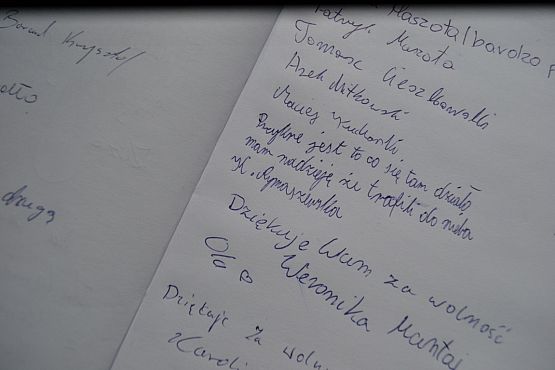 Baran Krzysztof
drugą
Maszota / bardzo
Patryk Mazota
Tomasz Cieszkowski
Arek Mitkowski
Maciej Kucharski
Przykre jest to co się tam działo,
mam nadzieję że trafili do nieba
K. Rymaszewska
Dziękuję Wam za wolność
Weronika Mantaj
Dziękuję za woln
Karoli